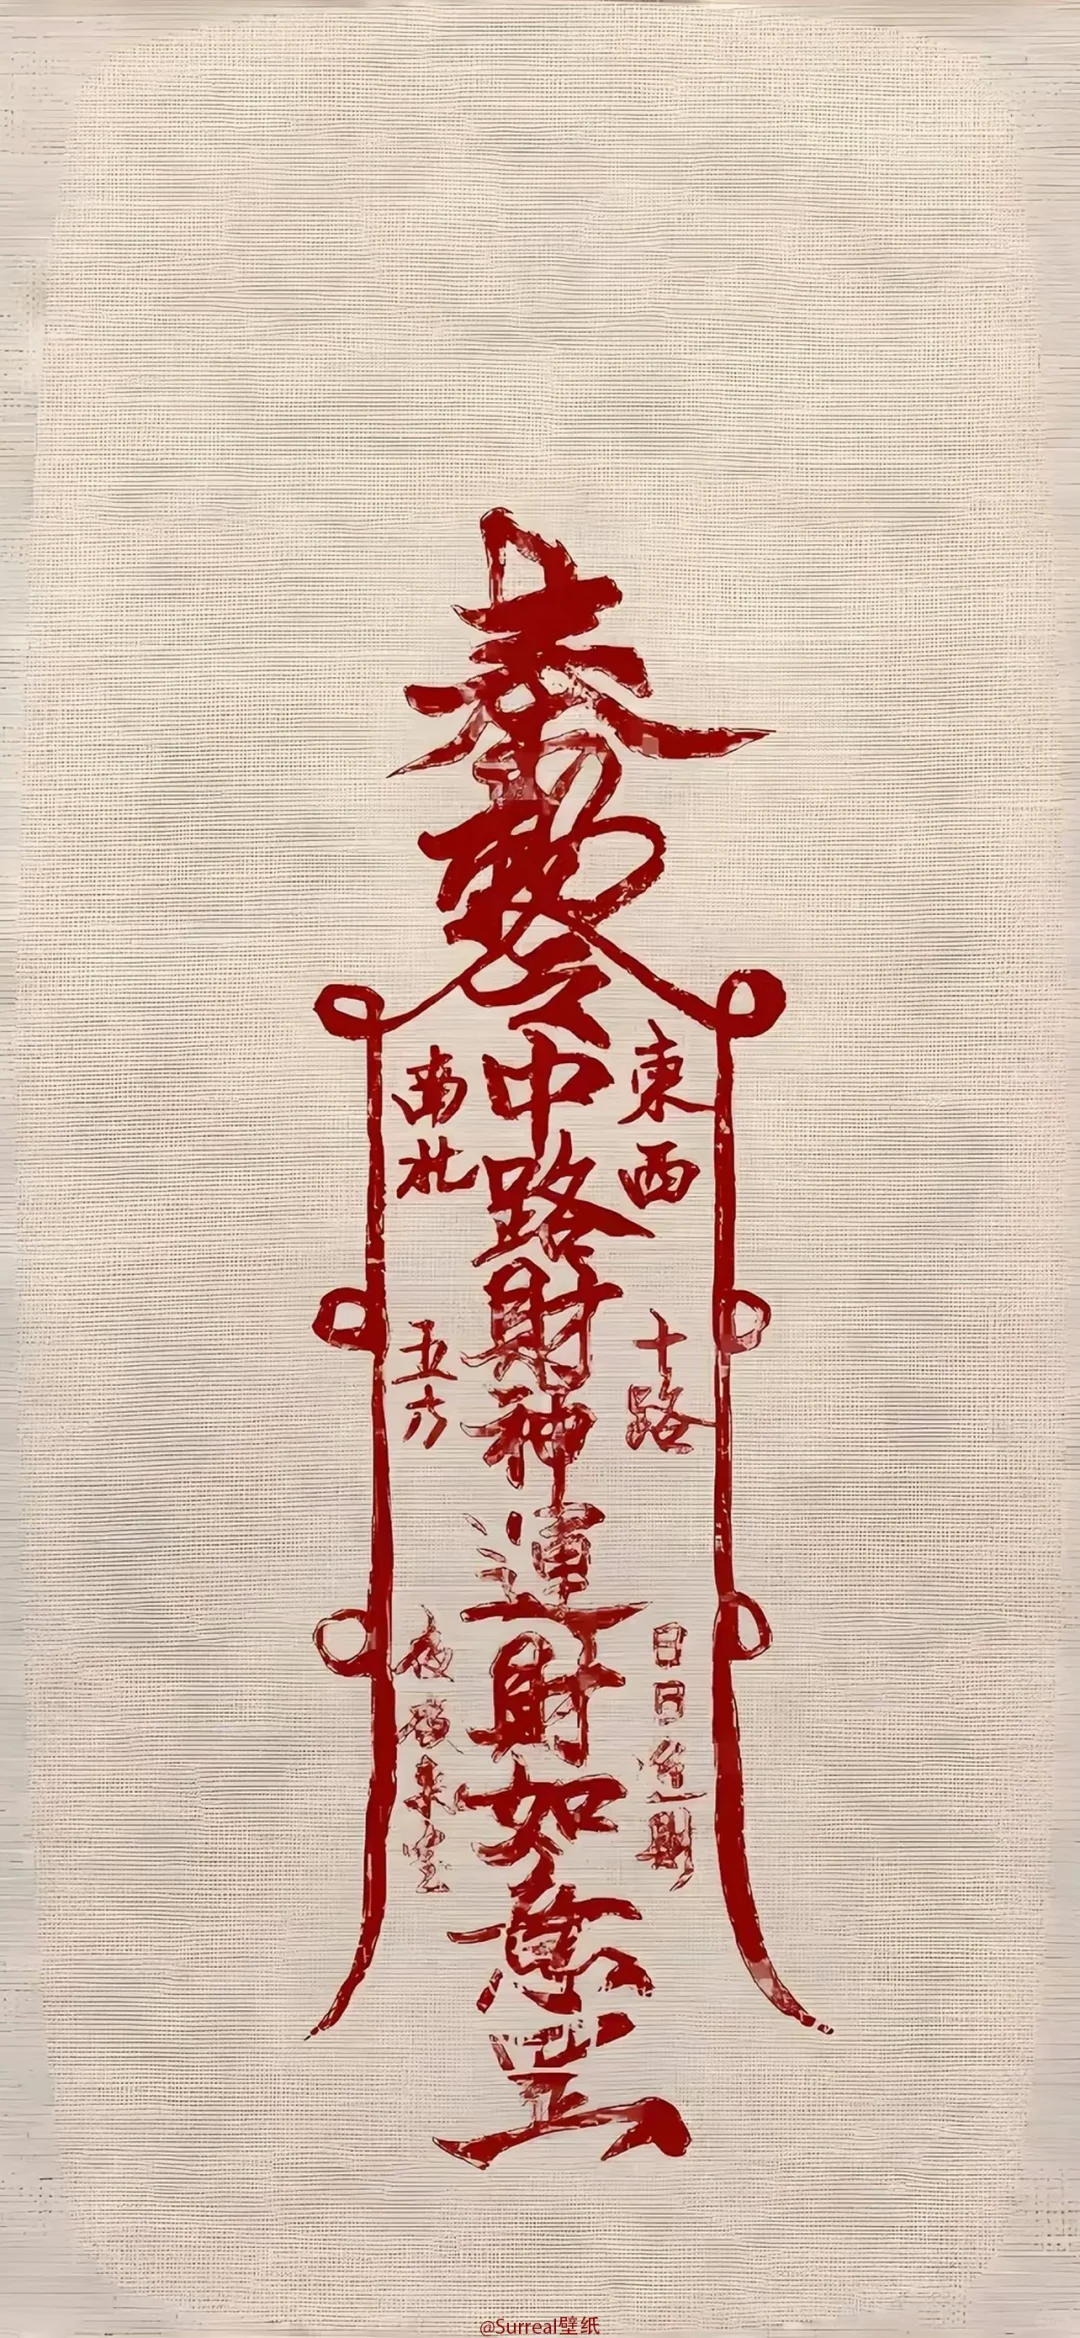 奉勅令
中路財神運財如意罡
東西
南北
十路
五方
日日進財
夜夜來寶
@Surreal壁纸